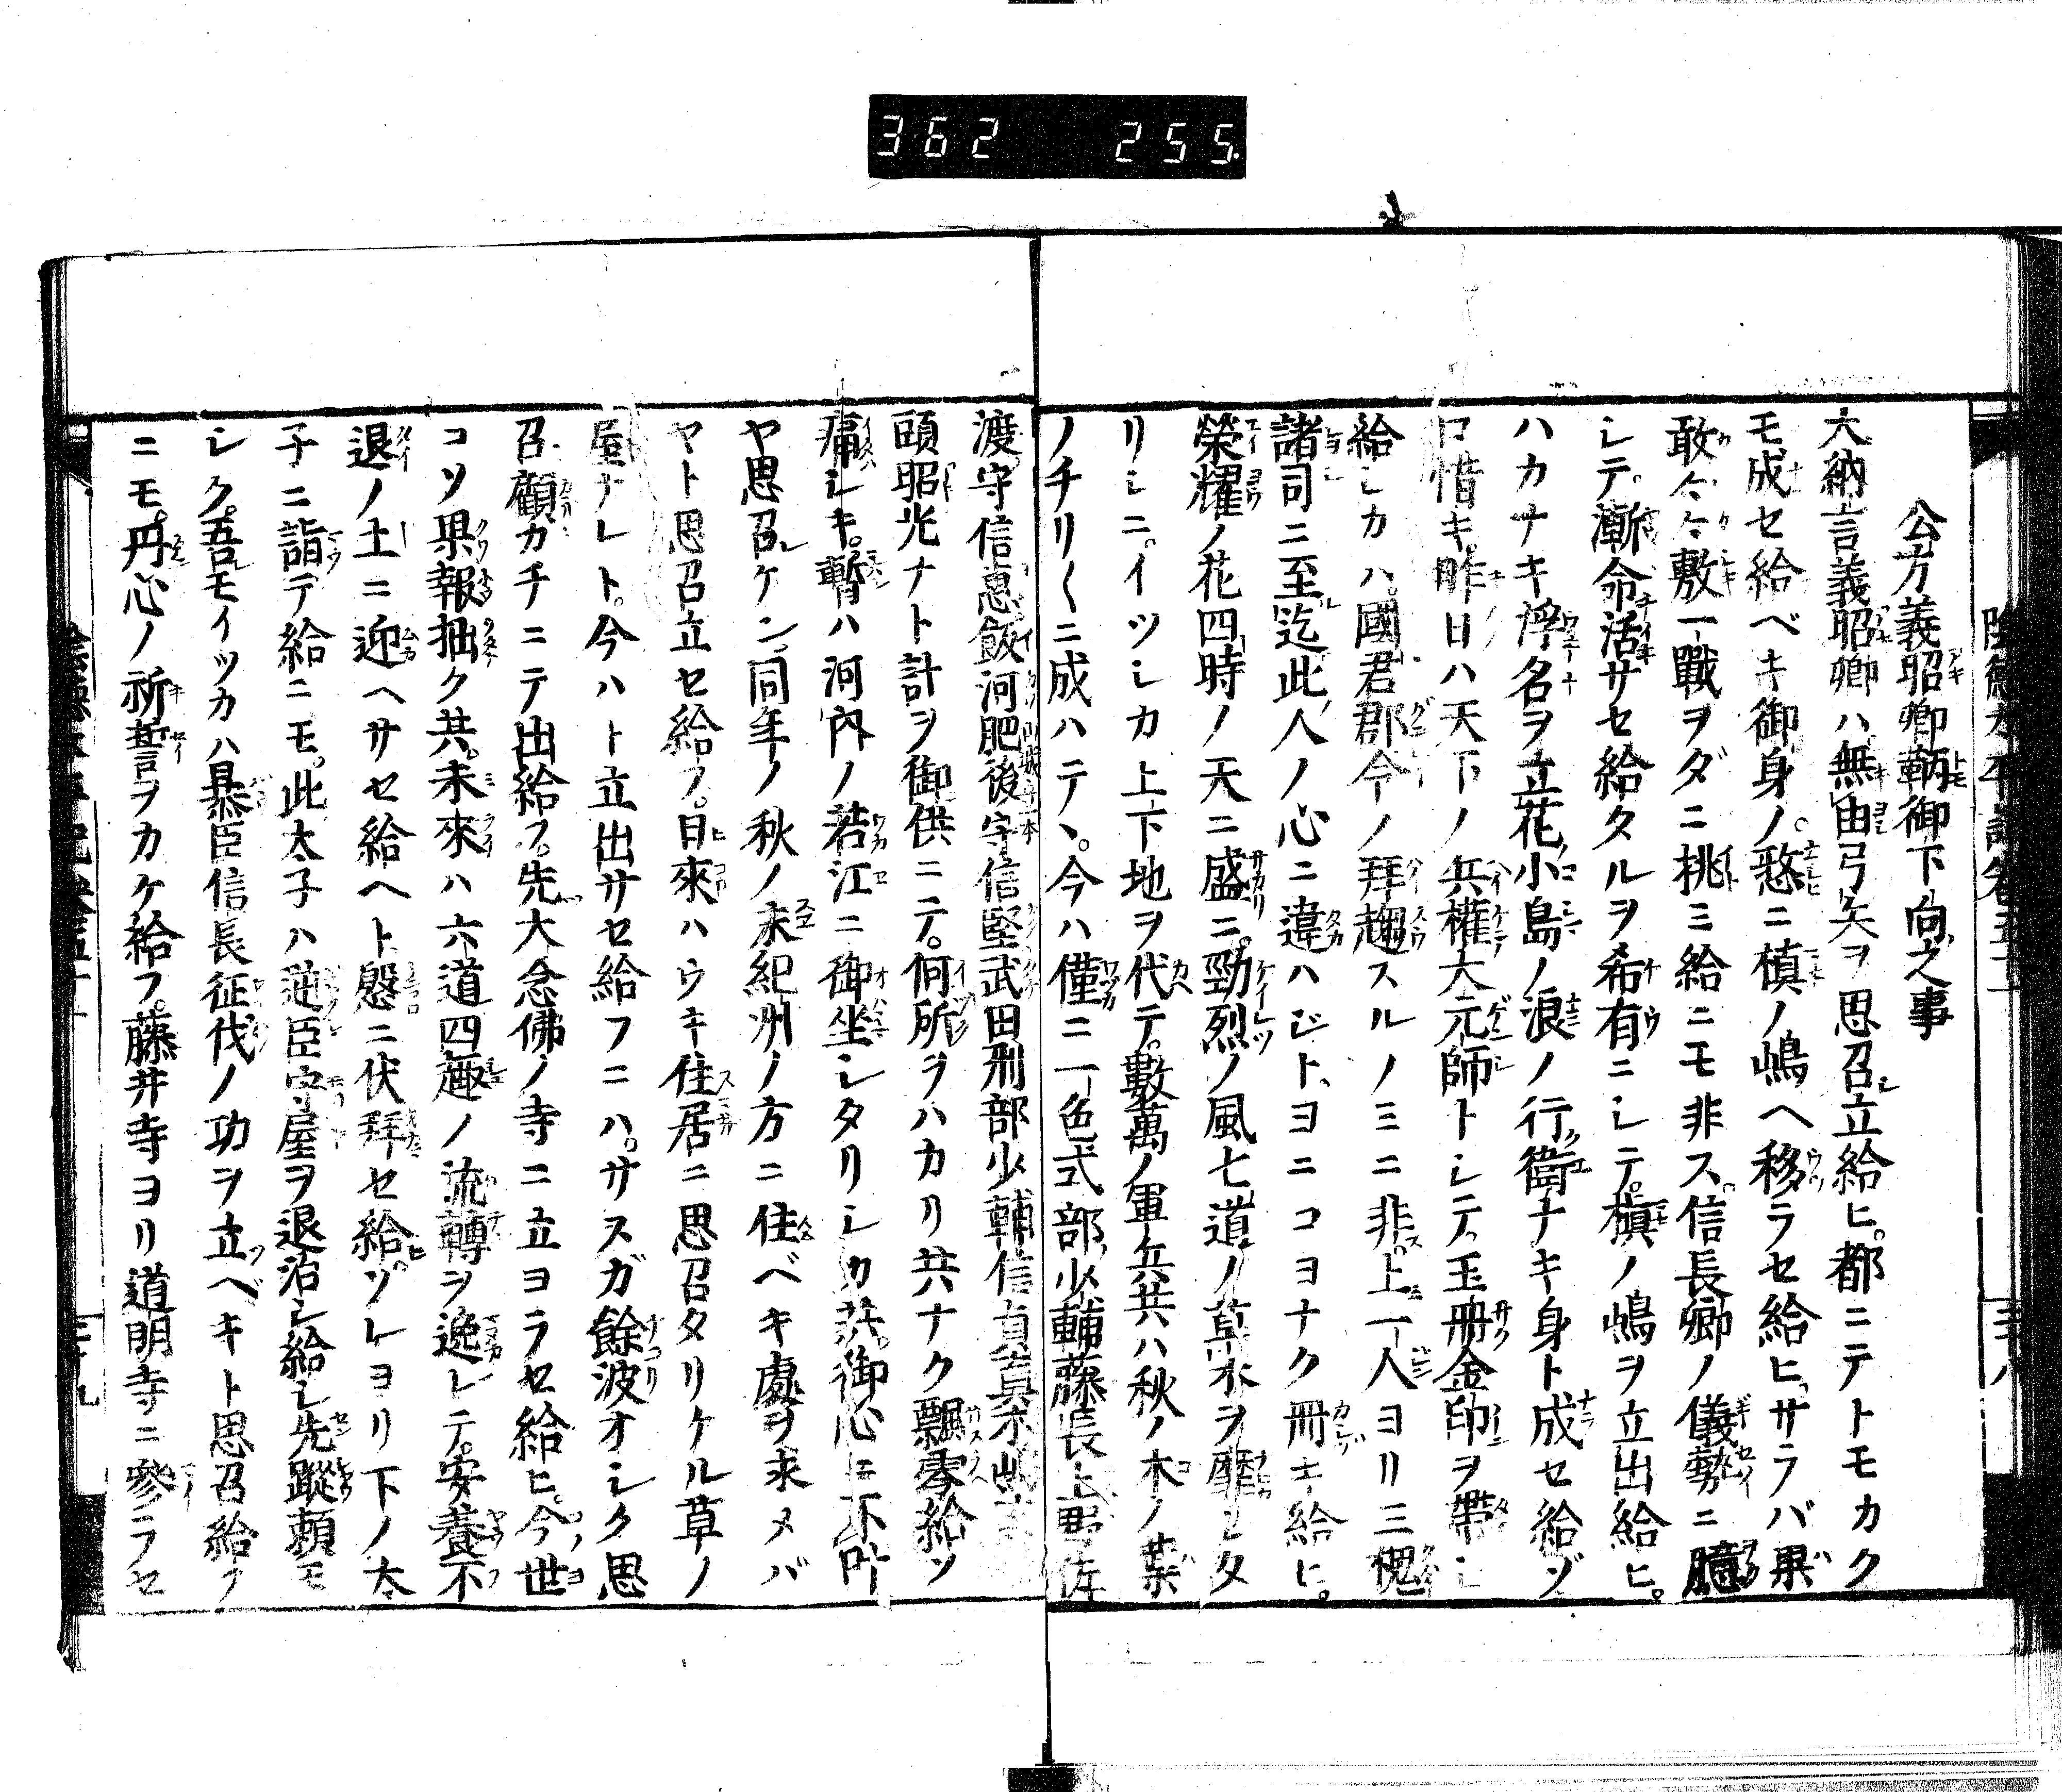 362 255
公方義昭卿鞆御下向之事
大納言義昭卿ハ無由弓矢ヲ思召立給ヒ。都ニテトモカク
モ成セ給ベキ御身ノ。憖ニ槙ノ嶋ヘ移ラセ給ヒ、サラバ果
敢々々敷一戰ヲダニ挑ミ給ニモ非ス。信長卿ノ儀勢ニ臆
シテ。漸命活サセ給タルヲ希有ニシテ。槇ノ嶋ヲ立出給ヒ。
ハカナキ浮名ヲ立花ノ小島ノ浪ノ行衛ナキ身ト成セ給ゾ
口惜キ。昨日ハ天下ノ兵權大元師トシテ。玉冊金印ヲ帶シ
給シカハ。國君郡令ノ拜趨スルノミニ非ス。上一人ヨリ三槐
諸司ニ至迄此人ノ心ニ違ハジト、ヨニコヨナク冊キ給ヒ。
榮耀ノ花四時ノ天ニ盛ニ。勁烈ノ風七道ノ草木ヲ靡シタ
リシニ。イツシカ上下地ヲ代テ。數萬ノ軍兵共ハ秋ノ木ノ葉
ノチリ〱ニ成ハテヽ。今ハ僅ニ一色式部少輔藤長上野佐
渡守信惠飯河肥後守信堅武田刑部少輔信貞真木嶋
頭昭光ナト計ヲ御供ニテ。何所ヲハカリ共ナク飄零給ソ
痛シキ。暫ハ河内ノ若江ニ御坐シタリシカ共。御心ニ不叶
ヤ思召ケン、同年ノ秋ノ末紀州ノ方ニ住ベキ處ヲ求メバ
ヤト思召立セ給フ。日來ハウキ住居ニ思召タリケル草ノ
屋ナレト。今ハト立出サセ給フニハ。サスガ餘波オシク思
召顧カチニテ出給フ。先大念佛ノ寺ニ立ヨラセ給ヒ。今世
コソ果報拙ク共。未來ハ六道四趣ノ流轉ヲ逸レテ。安養不
退ノ土ニ迎ヘサセ給ヘト慇ニ伏拜セ給ヒ。ソレヨリ下ノ太
子ニ詣テ給ニモ。此太子ハ逆臣守屋ヲ退治シ給シ先蹤頼モ
シク。吾モイツカハ暴臣信長征伐ノ功ヲ立ベキト思召給フ
ニモ。丹心ノ祈誓ヲカケ給フ。藤井寺ヨリ道明寺ニ參ラセ